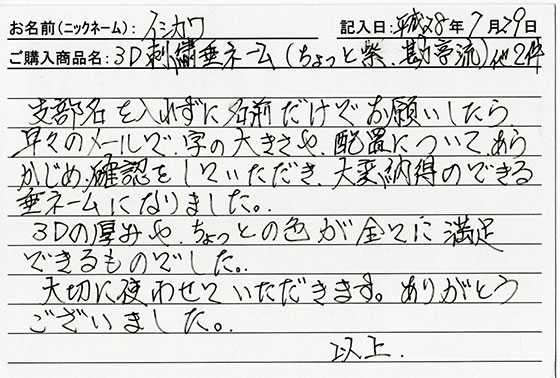 お名前(ニックネーム): イシカワ 記入日: 平成28年7月29日
ご購入商品名: 3D刺繍垂ネーム(ちょっと紫、勘亭流)他2件
支部名を入れずに名前だけでお願いしたら、
早々のメールで、字の大きさや、配置について、あら
かじめ、確認をしていただき、大変納得のできる
垂ネームになりました。
3Dの厚みや、ちょっとの色が全てに満足
できるものでした。
大切に使わせていただきます。ありがとう
ございました。
以上.